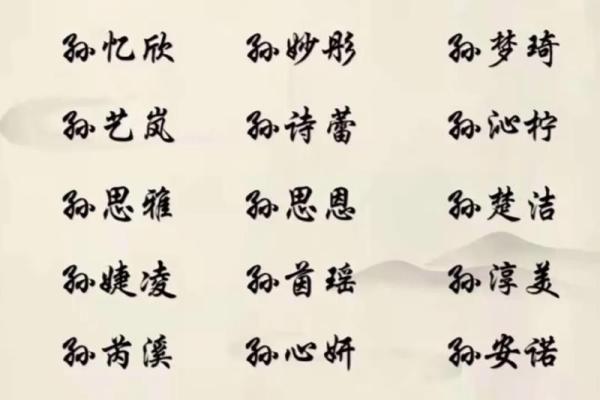 孙忆欣 孙妙彤 孙梦琦
孙艺岚 孙诗蕾 孙沁柠
孙思雅 孙思恩 孙楚洁
孙婕凌 孙茵瑶 孙淳美
孙芮溪 孙心妍 孙安诺